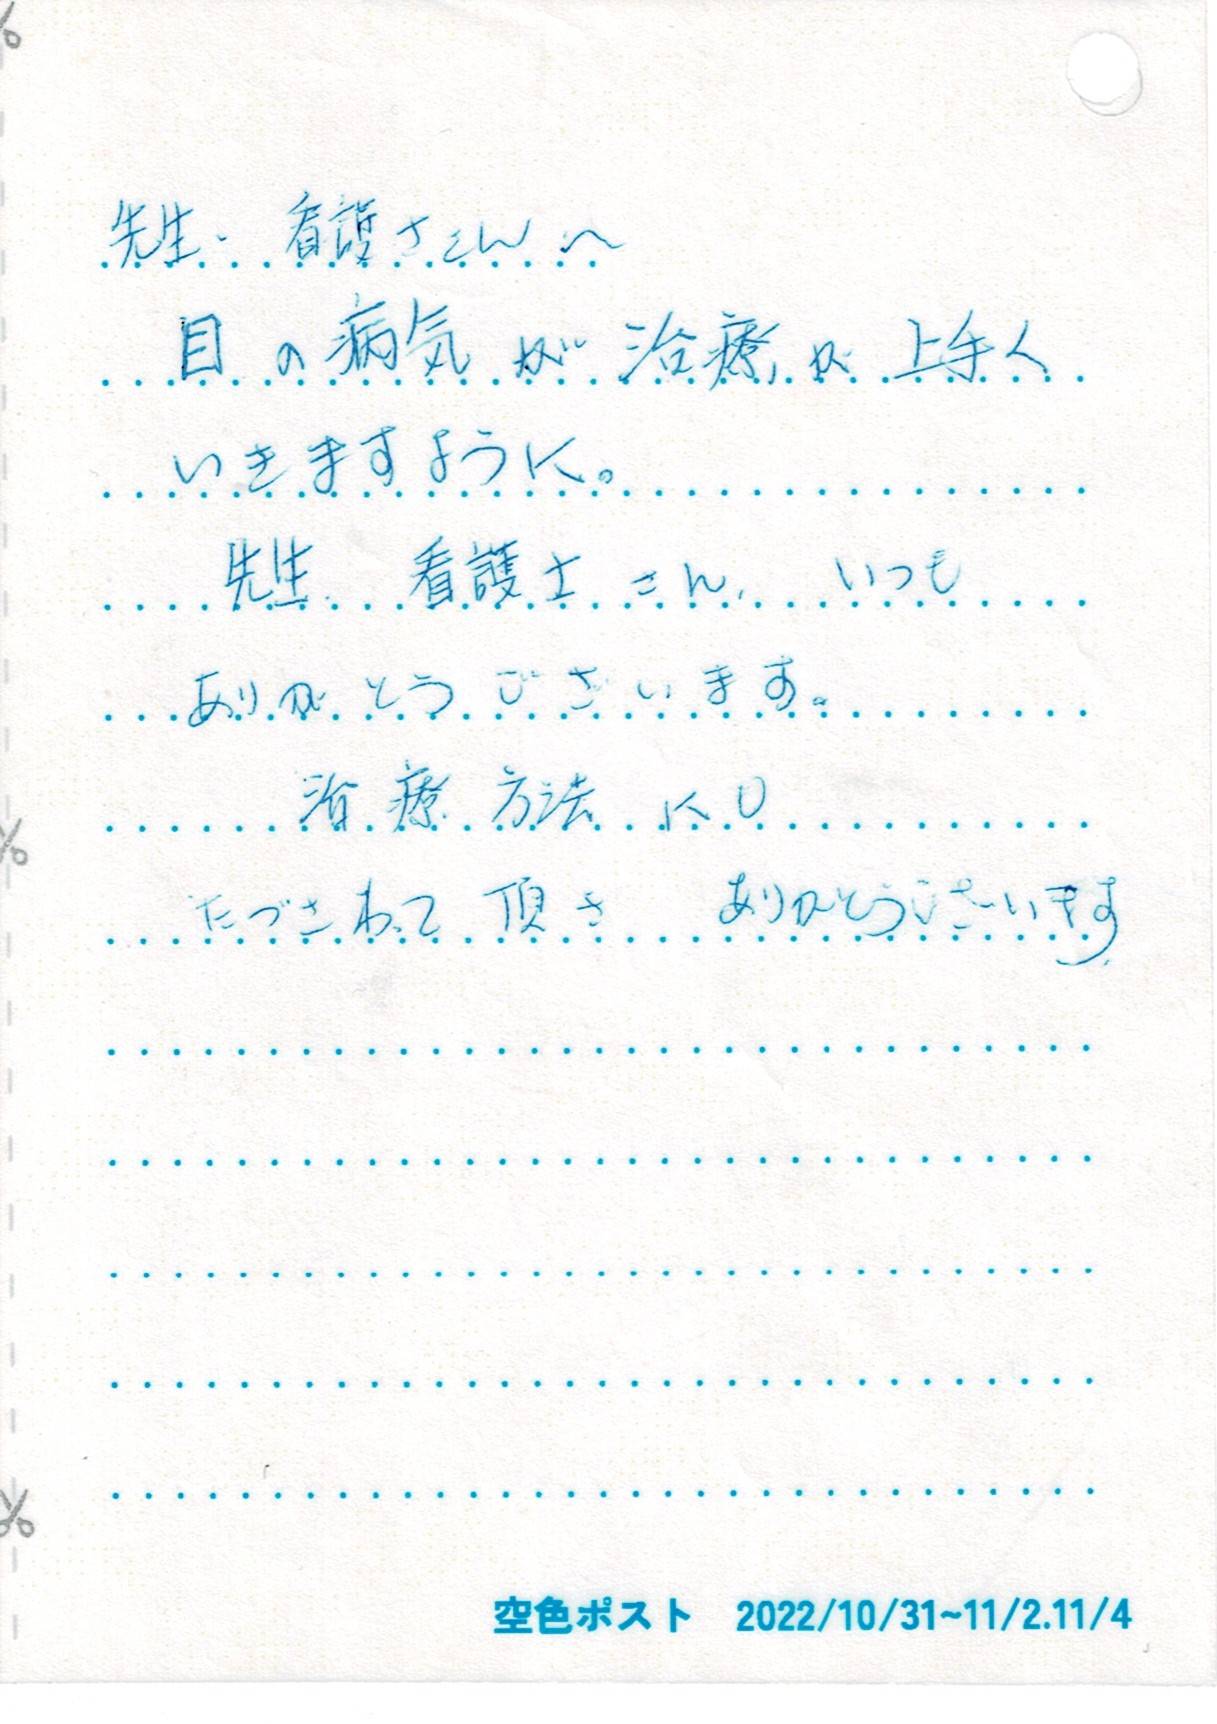 先生、看護さんへ
目の病気が治療が上手く
いきますように。
先生、看護士さん、いつも
ありがとうございます。
治療方法に
たづさわって頂き ありがとうございます
空色ポスト 2022/10/31~11/2.11/4